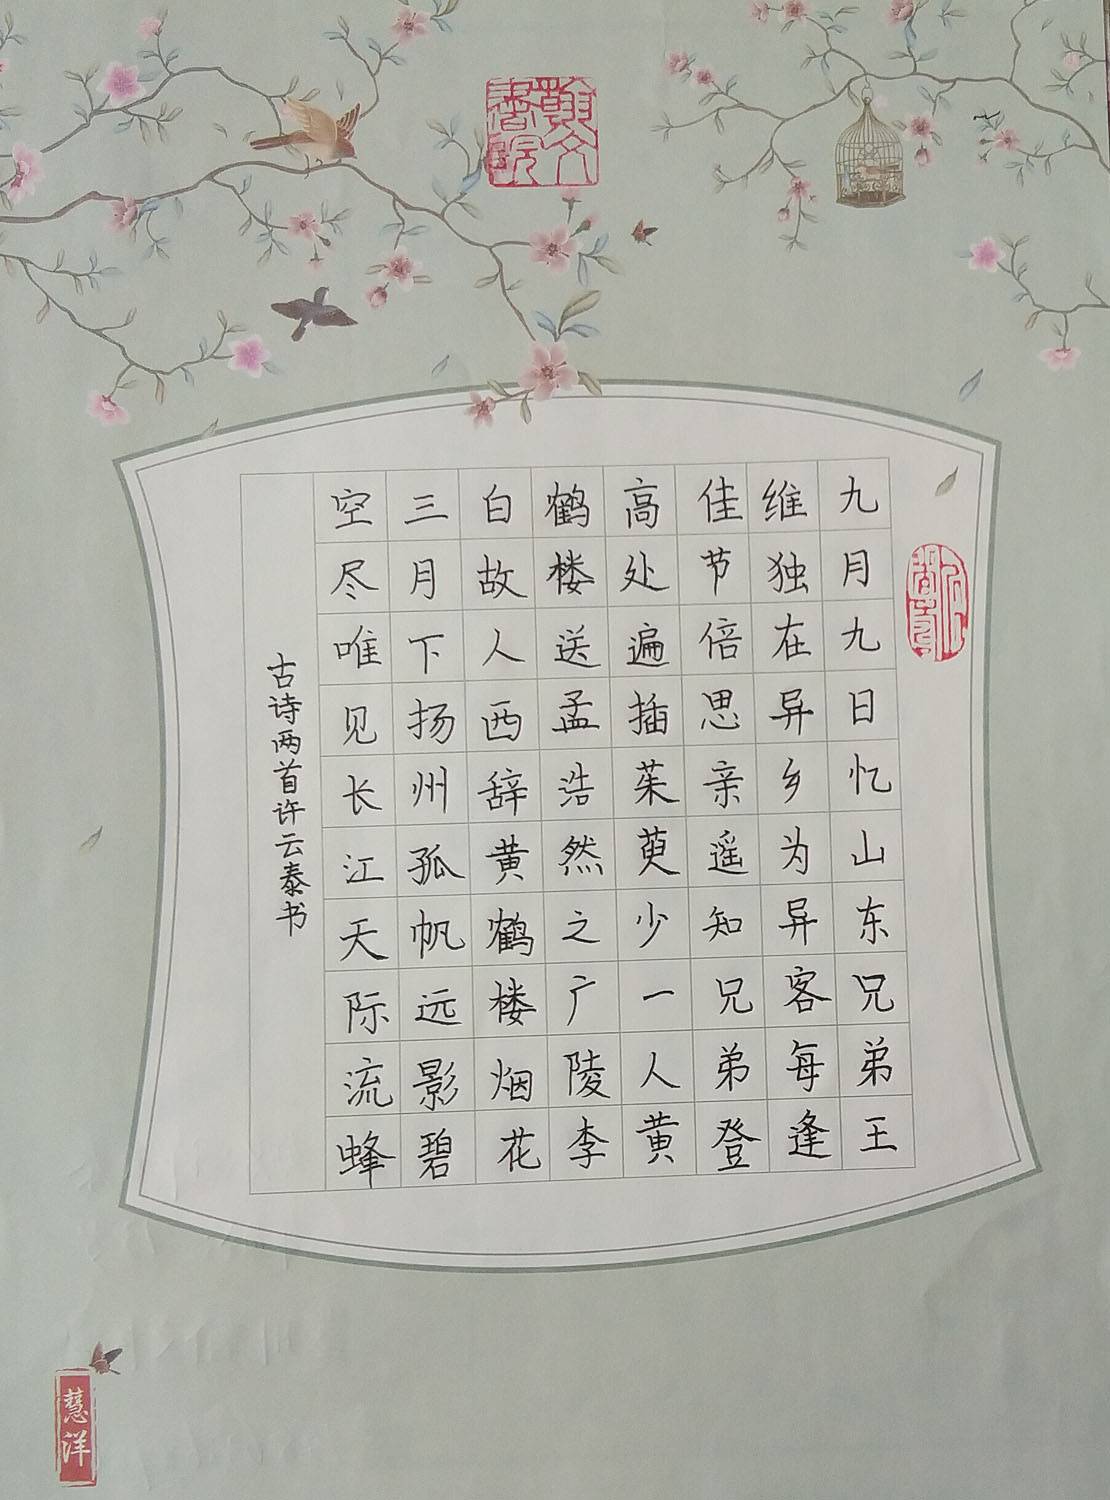 翰文
書院
九月九日忆山东兄弟王
维独在异乡为异客每逢
佳节倍思亲遥知兄弟登
高处遍插茱萸少一人黄
鹤楼送孟浩然之广陵李
白故人西辞黄鹤楼烟花
三月下扬州孤帆远影碧
空尽唯见长江天际流蜂
古诗两首许云泰书
慧洋